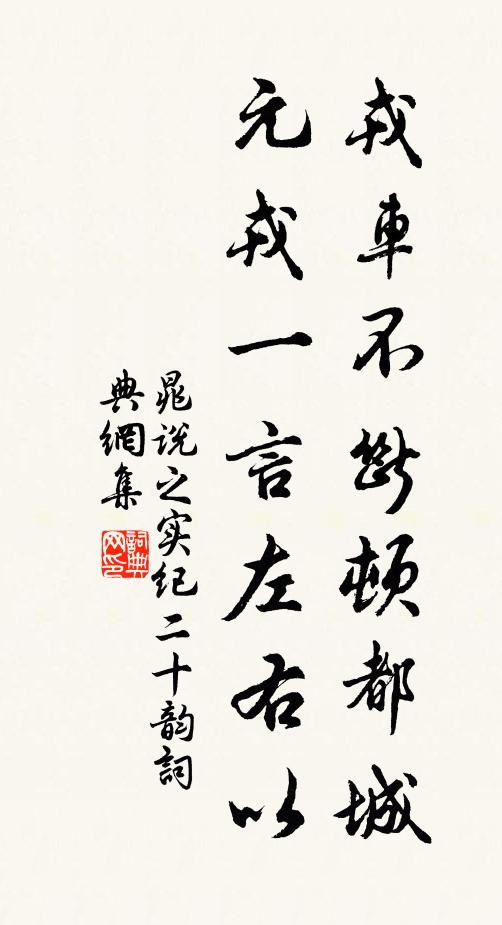 戎車不斷頓都城
元戎一言左右以
晁说之实纪二十韵詞
典網集
詞典网印